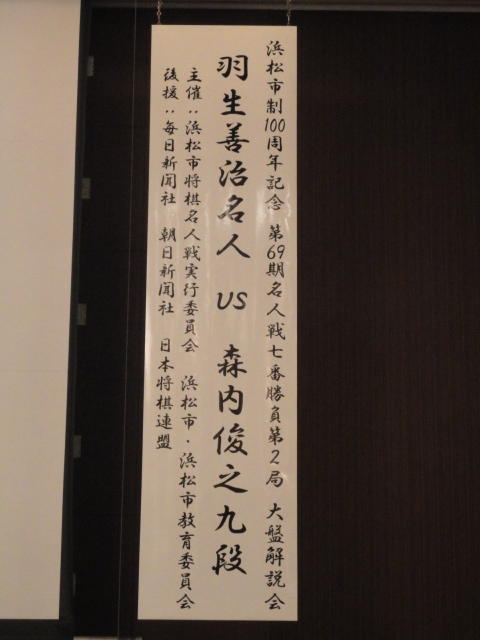 浜松市制100周年記念 第69期名人戦七番勝負第2局 大盤解説会
羽生善治名人 VS 森内俊之九段
主催：浜松市将棋名人戦実行委員会 浜松市・浜松市教育委員会
後援：毎日新聞社 朝日新聞社 日本将棋連盟